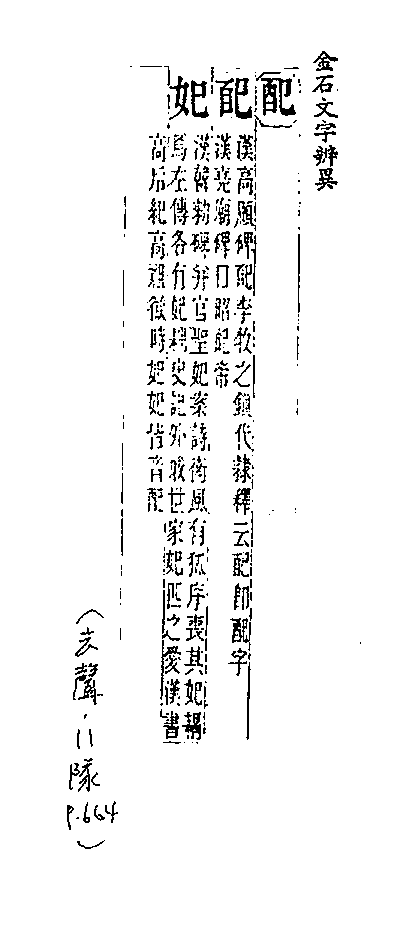 金石文字辨異
配
漢高頤碑配李牧之鎮代隸釋云配即配字
配
漢堯廟碑日昭配帝
妃
漢韓勑碑并官聖妃案詩衛風有狐序喪其妃耦
馬左傳各有妃耦史記外戚世家妃匹之愛漢書
高后紀高祖微時妃妃皆音配
(去聲.11隊
p.664)